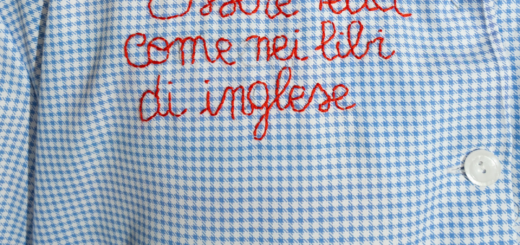 Essere
come nei libri
di inglese